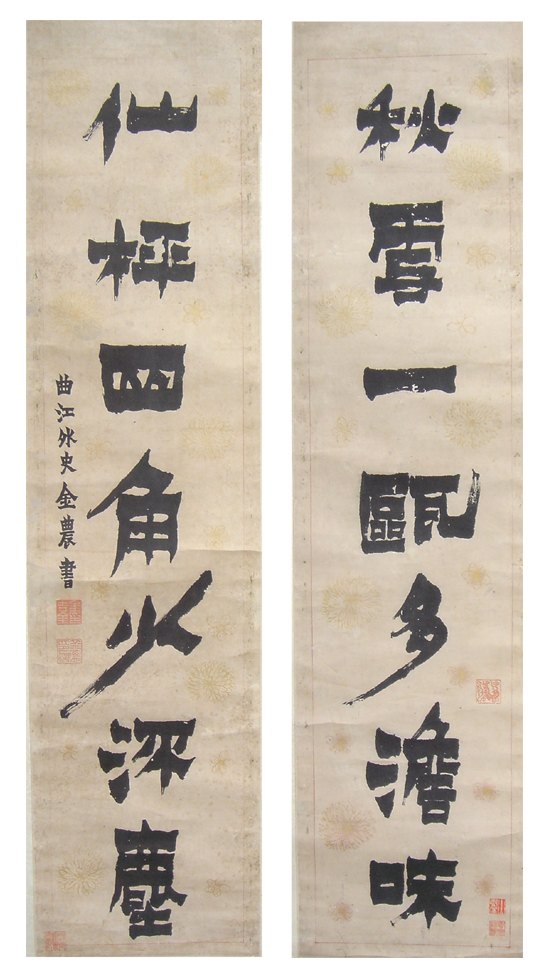 秋雪一甌多澹味
仙枰四角少深塵
曲江外史金農書